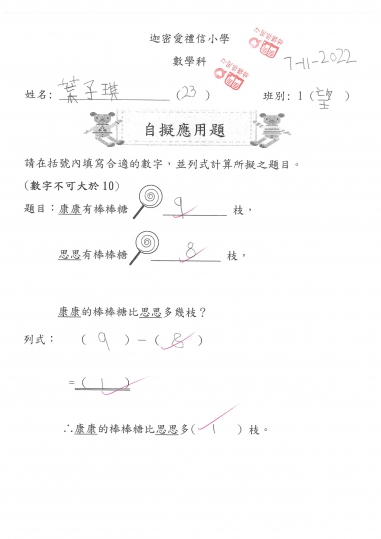 迦密愛禮信小學
數學科
7-11-2022
姓名: 葉子琪 (23) 班別: 1 (望)
自擬應用題
請在括號內填寫合適的數字，並列式計算所擬之題目。
(數字不可大於 10)
題目：康康有棒棒糖 9 枝，
思思有棒棒糖 8 枝，
康康的棒棒糖比思思多幾枝？
列式： ( 9 ) － ( 8 )
= ( 1 )
∴康康的棒棒糖比思思多( 1 ) 枝。